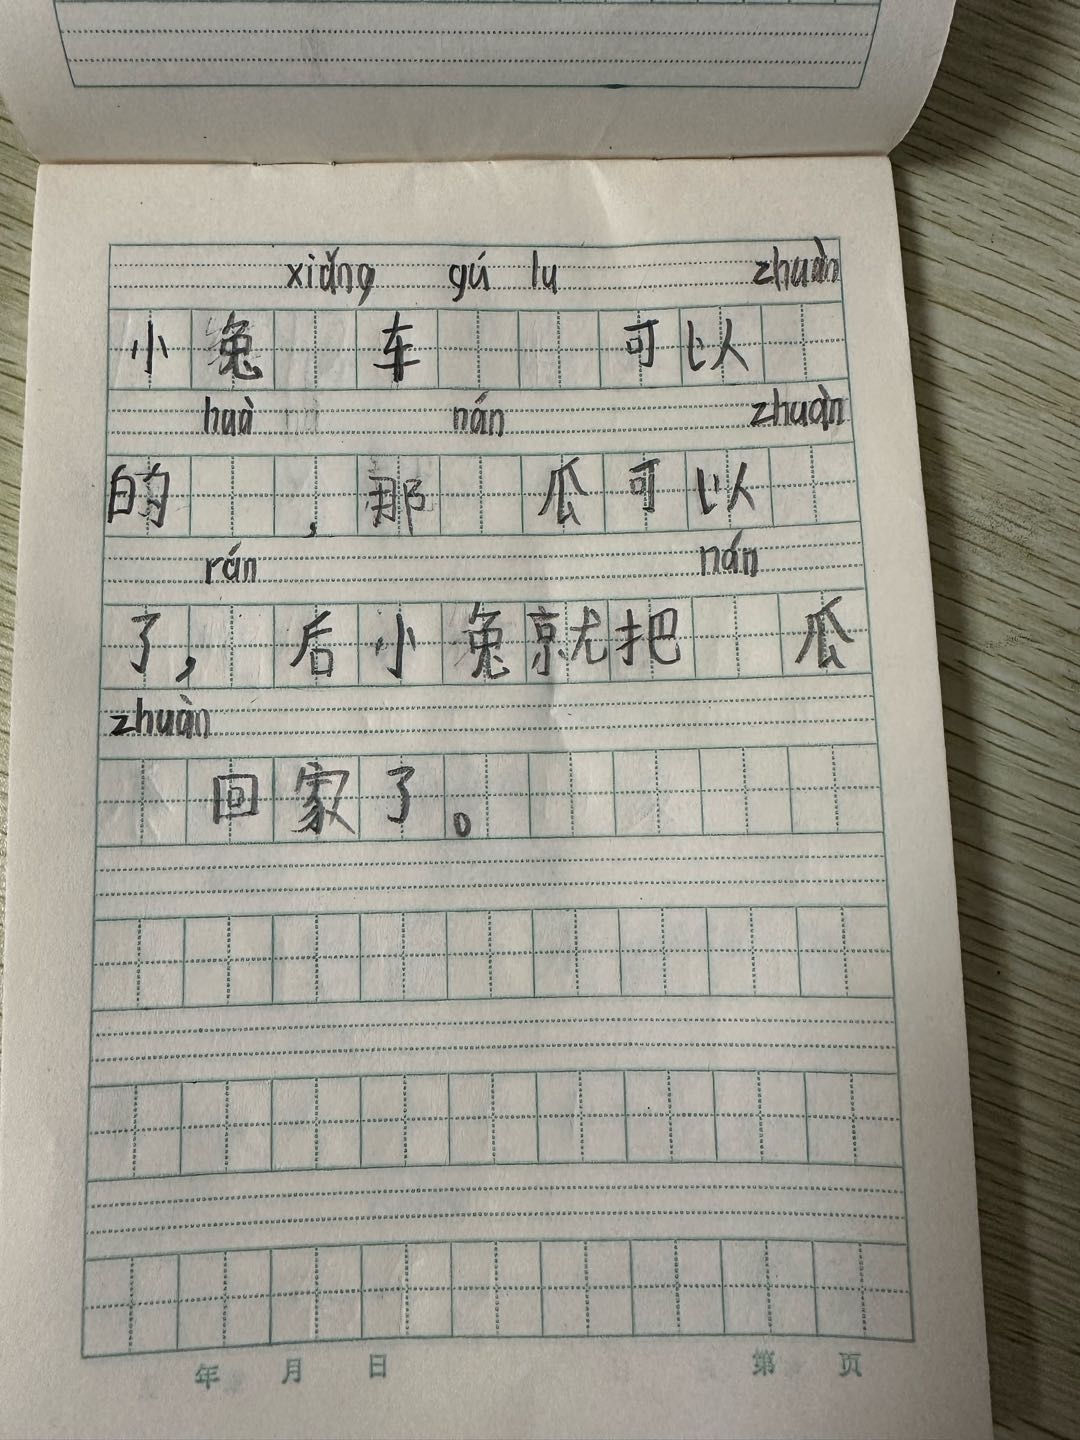 xiǎng gú lu zhuàn
小兔 车 可以
huà nán zhuàn
的 ，那 瓜可以
rán nán
了， 后小兔就把 瓜
zhuàn
回家了。
年 月 日 第 页